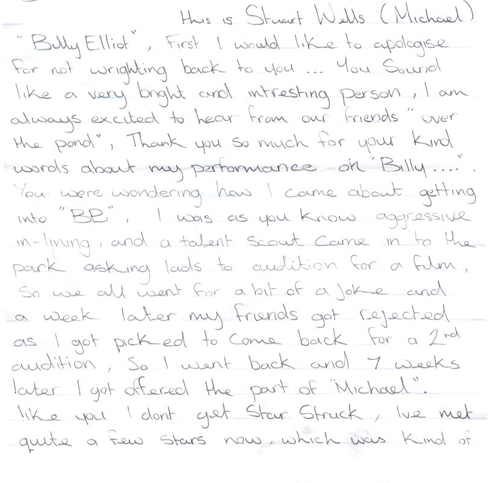 this is Stuart Wells (Michael)
"Billy Elliot", First I would like to apologise
for not wrighting back to you ... You Sound
like a very bright and intresting person, I am
always excited to hear from our friends "over
the pond", Thank you so much for your kind
words about my performance on "Billy....".
You were wondering how I came about getting
into "BE", I was as you know aggressive
in-lining, and a talent scout came in to the
park asking lads to audition for a film,
So we all went for a bit of a joke and
a week later my friends got rejected
as I got picked to come back for a 2nd
audition, So I went back and 7 weeks
later I got offered the part of "Michael".
like you I dont get Star Struck, Ive met
quite a few stars now, which was kind of